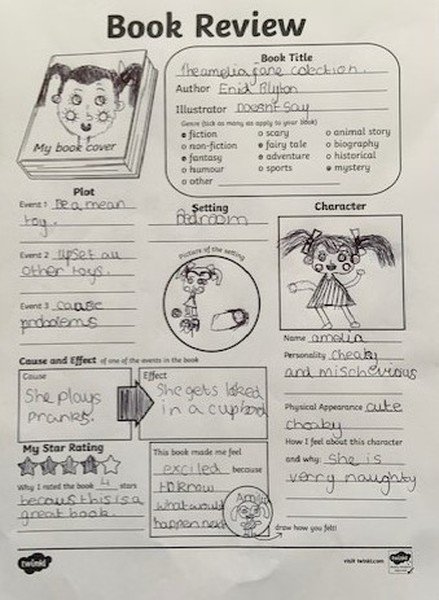 Book Review
My book cover
Book Title
The amelia jane colection.
Author Enid Blyton
Illustrator Doesnt say
Genre (tick as many as apply to your book)
fiction scary animal story
non-fiction fairy tale biography
fantasy adventure historical
humour sports mystery
other
Plot
Event 1 Be a mean
toy.
Event 2 upset all
other toys.
Event 3 cause
problems
Setting
Bedroom
Picture of the setting
Character
Name amelia
Personality cheaky
and mischevious
Physical Appearance cute
cheaky
How I feel about this character
and why: she is
verry naughty
Cause and Effect of one of the events in the book
Cause
She plays
pranks.
Effect
She gets loked
in a cupbord
My Star Rating
Why I rated the book 4 stars
becaus this is a
great book.
This book made me feel
exciled because
to know
what would
happen next
Amelia
draw how you felt!
twinkl
visit twinkl.com
twinkl